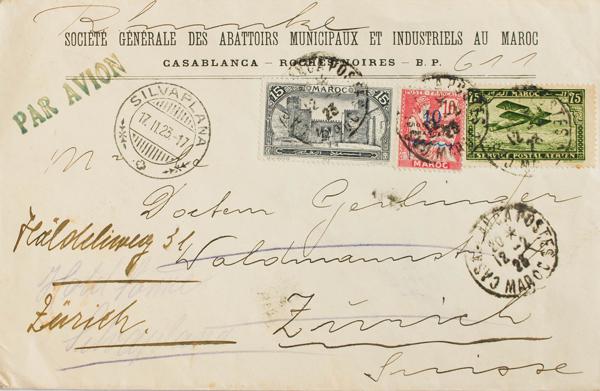 SOCIÉTÉ GÉNÉRALE DES ABATTOIRS MUNICIPAUX ET INDUSTRIELS AU MAROC
CASABLANCA - ROCHES NOIRES - B.P. 611
PAR AVION
SILVAPLANA
17.II.23-17
15 MAROC 15
10
MAROC
75
SERVICE POSTAL AÉRIEN
Doctem Gerlinger
Waldmannstr
31
Zürich.
Zürich
Suisse
CASABLANCA POSTES
20 *
12 - 2
23
MAROC